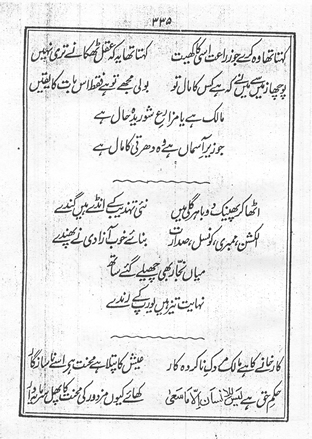 ۳۳۵
کہتا تھا وہ کرے جو زراعت اسی کا کھیت
کہتا تھا یہ کہ عقل ٹھکانے تری نہیں
پوچھا زمیں سے میں نے کہ ہے کس کا مال تو
بولی مجھے تو ہے فقط اس بات کا یقیں
مالک ہے یا مزارع شوریدہ حال ہے
جو زیر آسماں ہے وہ دھرتی کا مال ہے
اٹھا کر پھینک دو باہر گلی میں
نئی تہذیب کے انڈے ہیں گندے
الکشن، ممبری، کونسل، صدارت
بنائے خوب آزادی نے پھندے
میاں نجار بھی چھیلے گئے ساتھ
نہایت تیز ہیں یورپ کے رندے
کارخانے کا ہے مالک مردک ناکردہ کار
عیش کا پتلا ہے محنت ہے اسے ناسازگار
حکم حق ہے لیس للانسان الا ما سعیٰ
کھائے کیوں مزدور کی محنت کا پھل سرمایہ دار